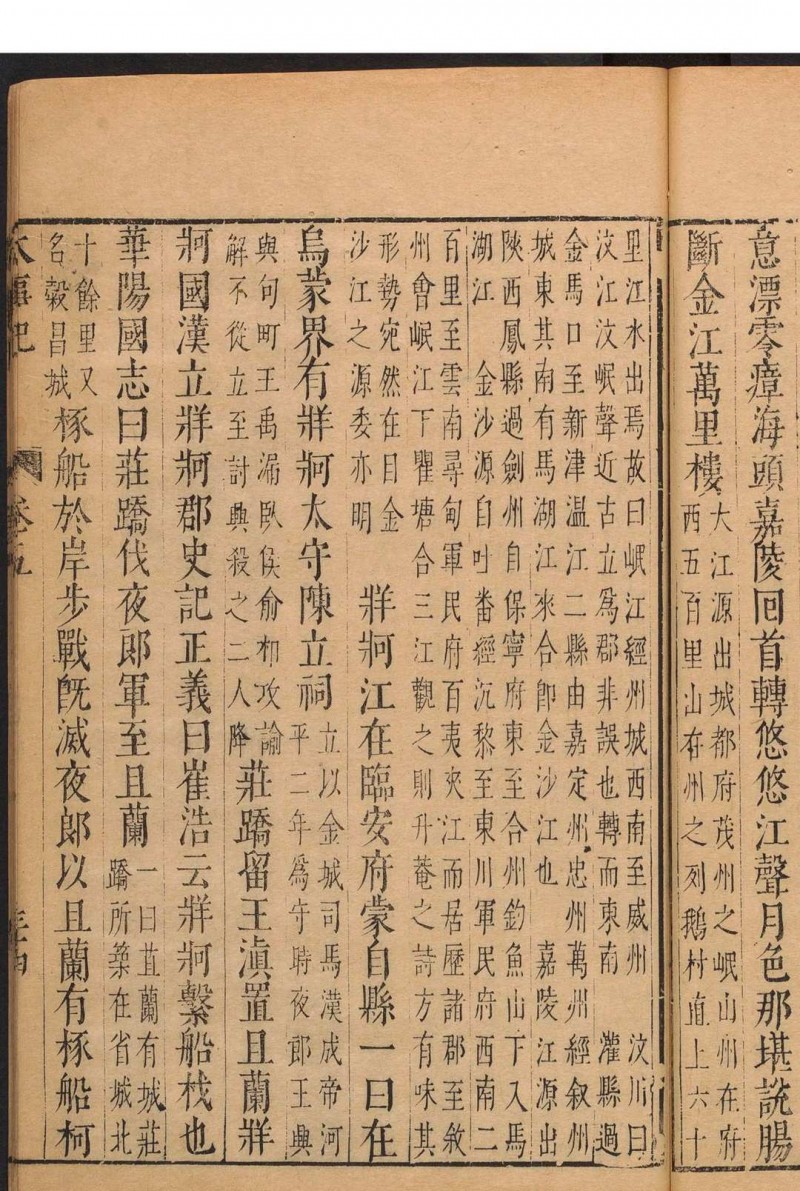 意漂零瘴海頭嘉陵回首轉悠悠江聲月色那堪說腸
斷金江萬里樓
大江源出城都府茂州之岷山州在府
西五百里山在州之列鵝村直上六十
里江水出焉故曰岷江經州城西南至威州 汶川曰
汶江汶岷聲近古立為郡非誤也轉而東南 灌縣過
金馬口至新津温江二縣由嘉定州忠州萬州經叙州
城東其南有馬湖江來合即金沙江也 嘉陵江源出
陝西鳳縣過劍州自保寧府東至合州釣魚山下入馬
湖江 金沙源自吐番經沉黎至東川軍民府西南二
百里至雲南尋甸軍民府百夷夾江而居歷諸郡至敘
州會岷江下瞿塘合三江觀之則升菴之詩方有味其
形勢宛然在目金
沙江之源委亦明
牂牁江在臨安府蒙自縣一曰在
烏蒙界有牂牁太守陳立祠
立以金城司馬漢成帝河
平二年為守時夜郎王興
與句町王禹漏臥侯俞相攻諭
解不從立至討興殺之二人降
莊蹻留王滇置且蘭牂
牁國漢立牂牁郡史記正義曰崔浩云牂牁繫船杙也
華陽國志曰莊蹻伐夜郎軍至且蘭
一曰苴蘭有城莊
蹻所築在省城北
十餘里又
名穀昌城
椓船於岸步戰旣滅夜郎以且蘭有椓船柯
卷五